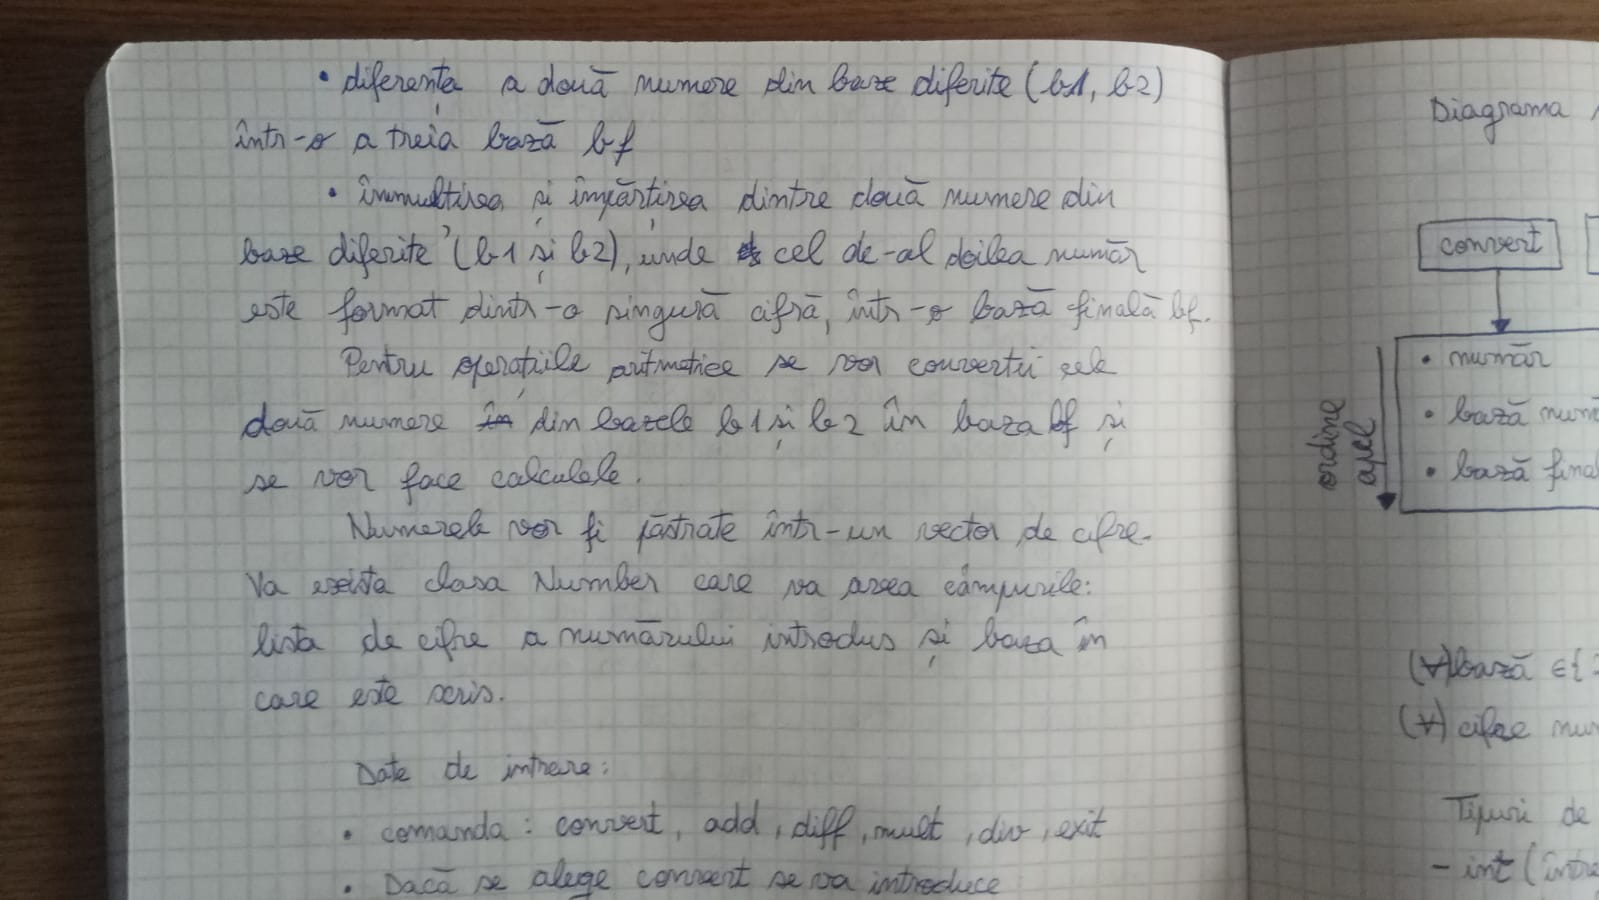 • diferența a două numere din baze diferite (b1, b2)
într-o a treia bază bf
• înmulțirea și împărțirea dintre două numere din
baze diferite (b1 și b2), unde cel de-al doilea număr
este format dintr-o singură cifră, într-o bază finală bf.
Pentru operațiile aritmetice se vor convertii cele
două numere din bazele b1 și b2 în baza bf și
se vor face calculele.
Numerele vor fi păstrate într-un vector de cifre.
Va exista clasa Number care va avea câmpurile:
lista de cifre a numărului introdus și baza în
care este scris.
Date de intrare:
• comanda: convert, add, diff, mult, div, exit
• Dacă se alege convert se va introduce
Diagrama
convert
ordine
apel
• număr
• bază num
• bază fina
(∀) bază ∈{
(∀) cifre num
Tipuri de
- int (într